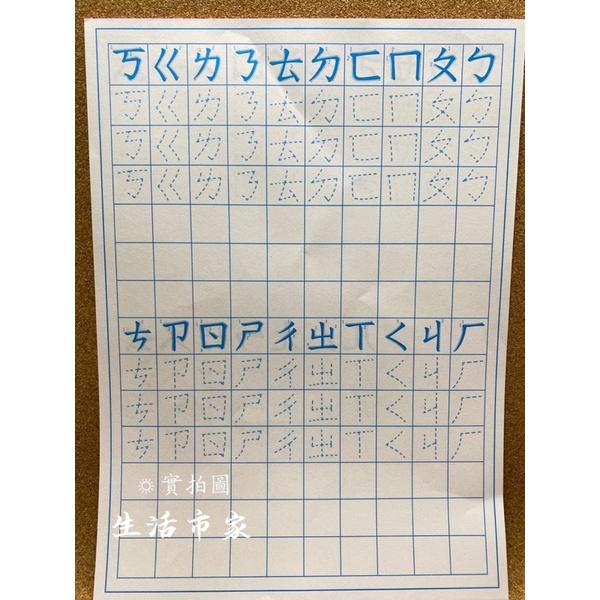 ㄎㄍㄌㄋㄊㄉㄈㄇㄆㄅ
ㄎㄍㄌㄋㄊㄉㄈㄇㄆㄅ
ㄎㄍㄌㄋㄊㄉㄈㄇㄆㄅ
ㄎㄍㄌㄋㄊㄉㄈㄇㄆㄅ
ㄘㄗㄖㄕㄔㄓㄒㄑㄐㄏ
ㄘㄗㄖㄕㄔㄓㄒㄑㄐㄏ
ㄘㄗㄖㄕㄔㄓㄒㄑㄐㄏ
ㄘㄗㄖㄕㄔㄓㄒㄑㄐㄏ
實拍圖
生活市家